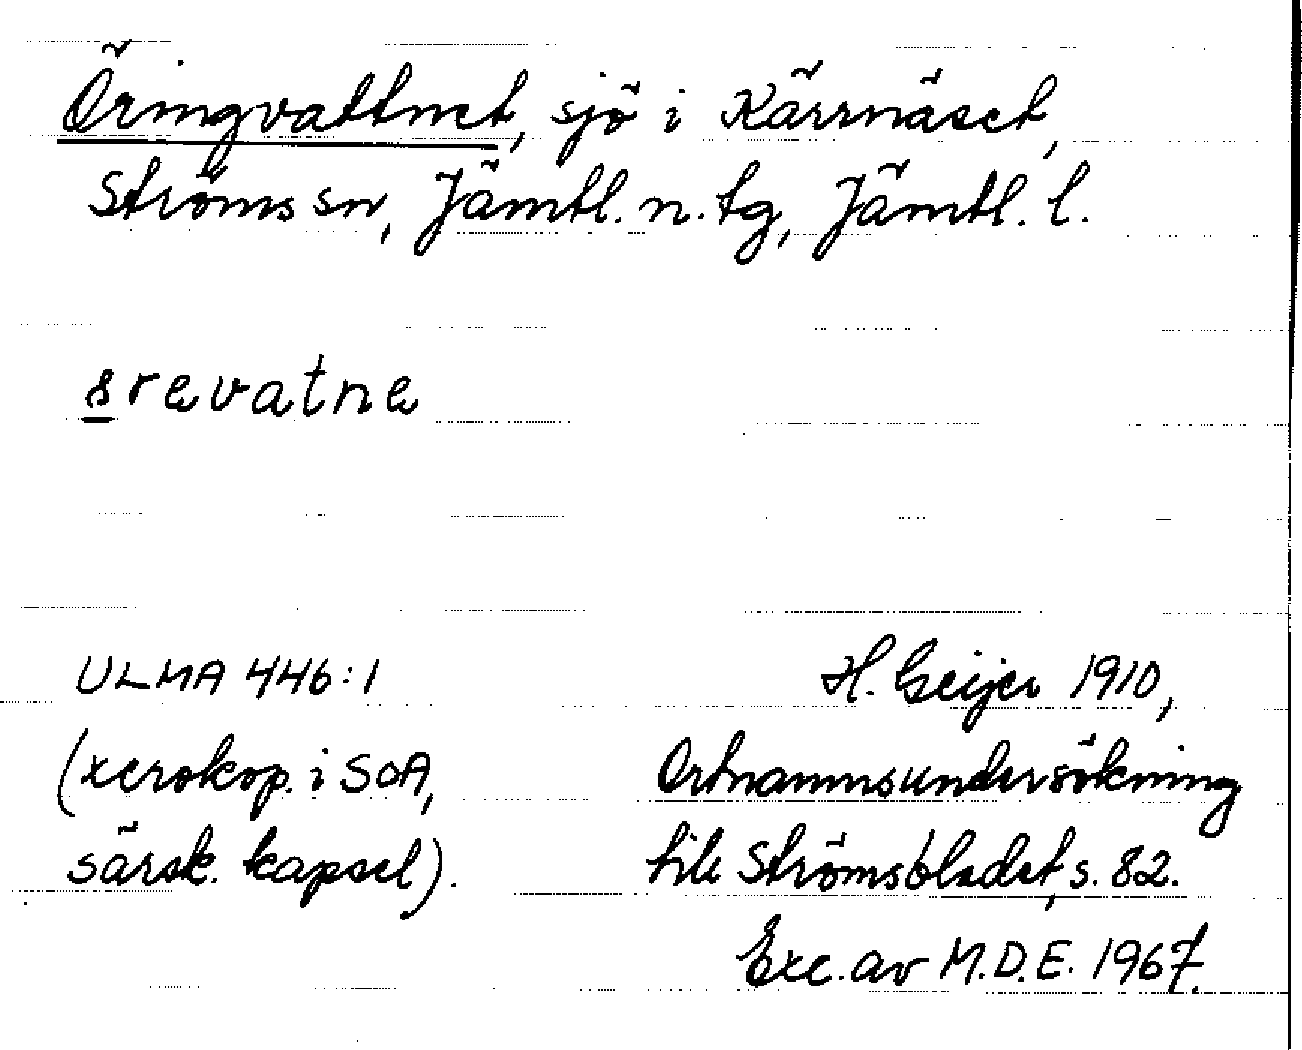 Öringvattnet, sjö i Kärrnäset,
Ströms sn, Jämtl. n. tg, Jämtl. l.
revatne
ULMA 446:1
(xerokop. i SOA,
särsk. kapsel).
H. Geijer 1910,
Ortnamnsundersökning
till Strömsbladet, s. 82.
Exc. av M.D.E. 1967.